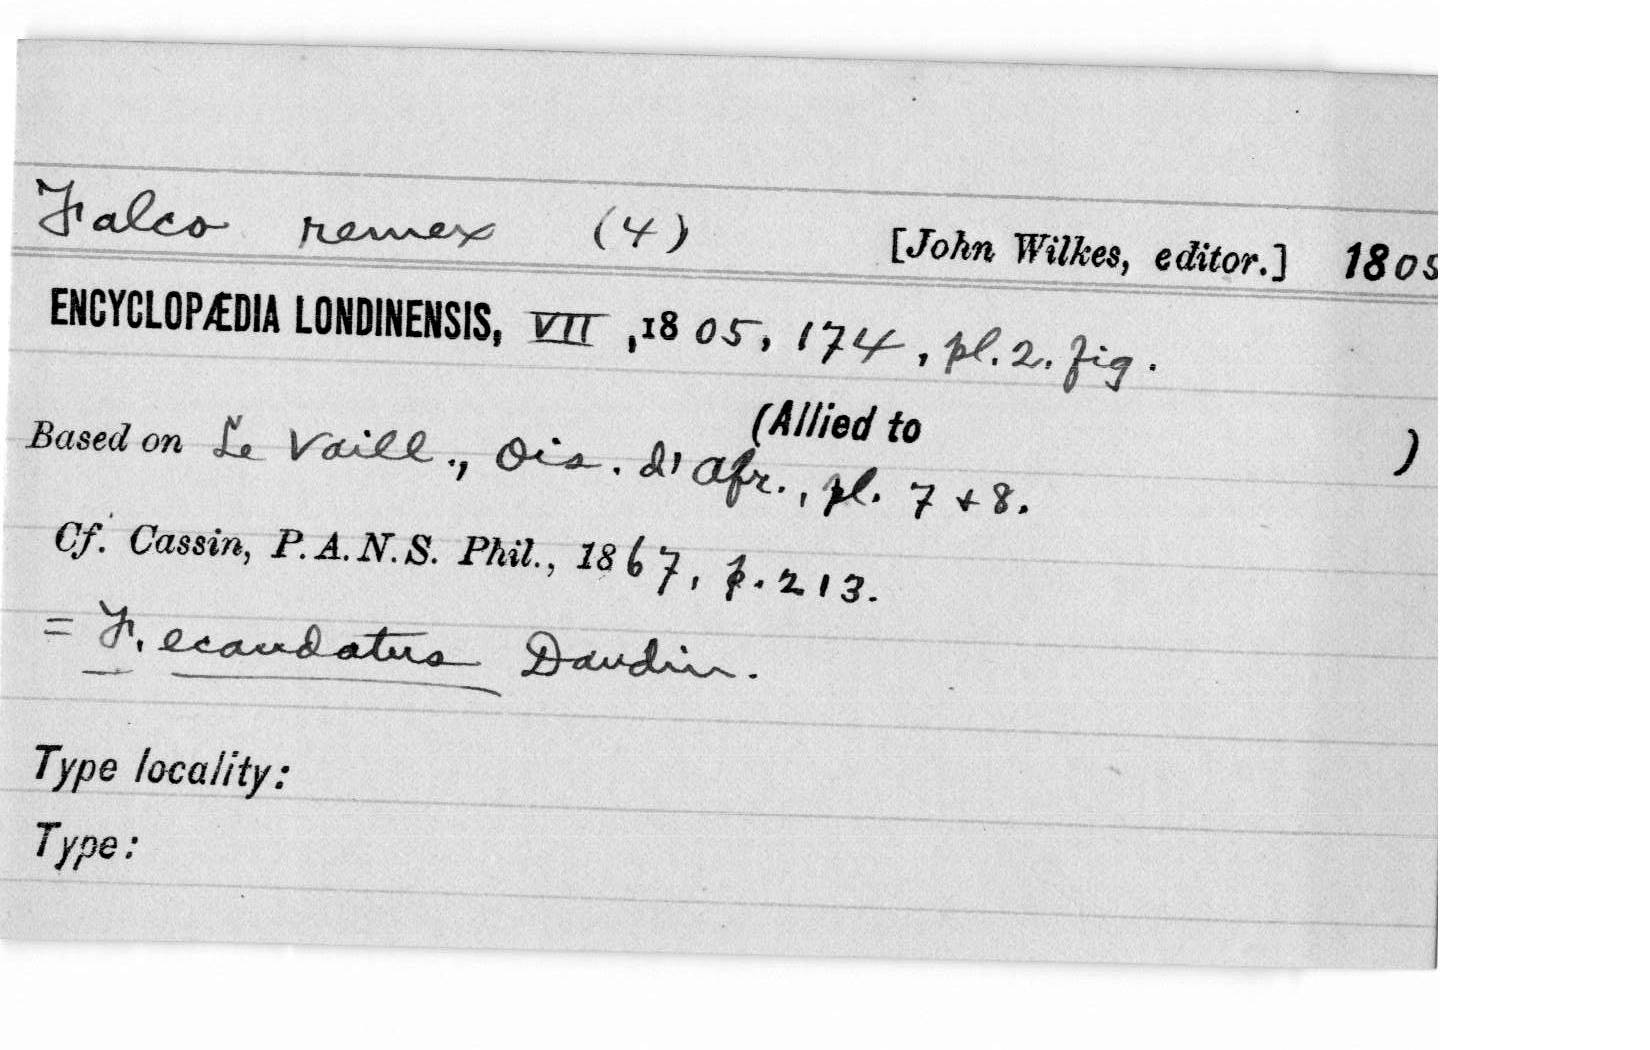 Falco remex (4) [John Wilkes, editor.] 1805
ENCYCLOPÆDIA LONDINENSIS, VII, 1805, 174, pl. 2. fig.
(Allied to )
Based on Le Vaill., Ois. d'Afr., pl. 7 + 8.
Cf. Cassin, P. A. N. S. Phil., 1867, p. 213.
= F. ecaudatus Daudin.
Type locality:
Type: